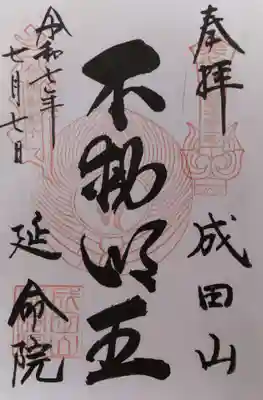 奉拝
成田山
不動明王
令和七年
七月七日
延命院